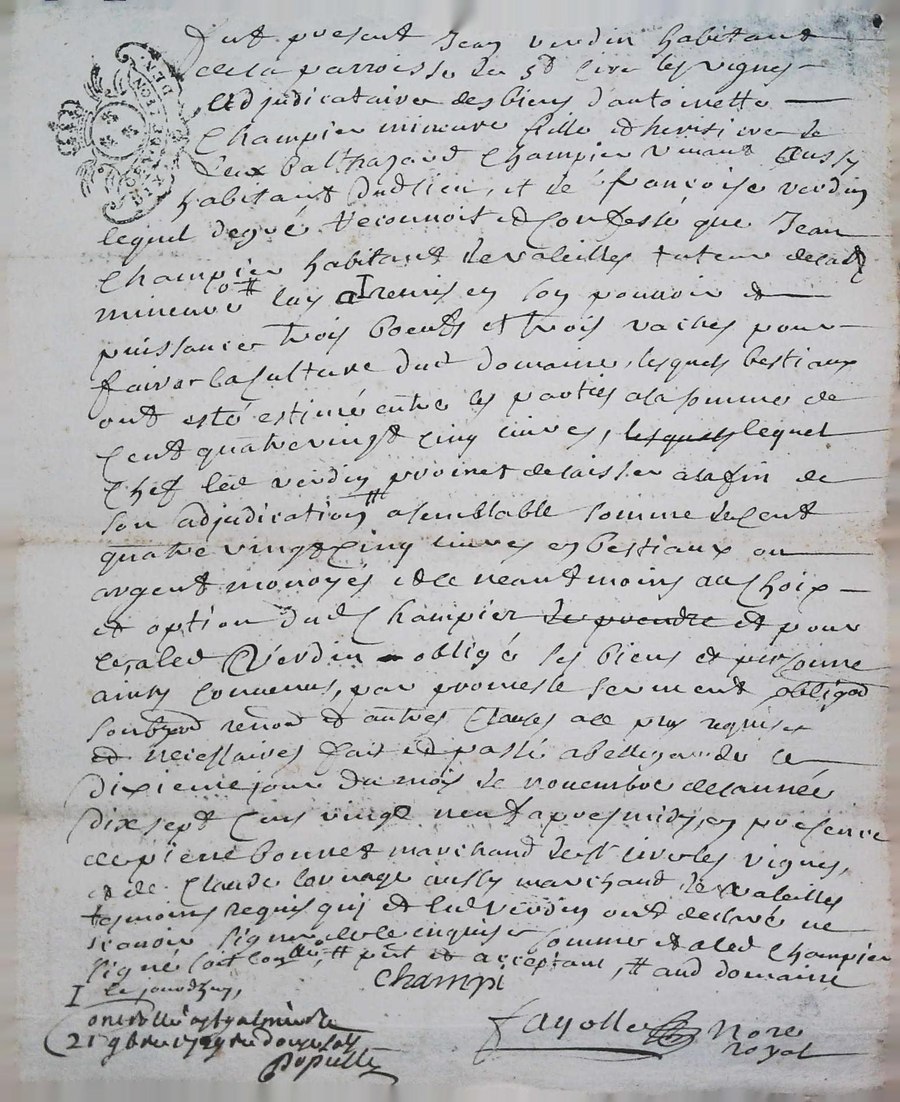 fut present Jean verdin habitant
de la parroisse de St cire les vignes
adjudicataire des biens d'antoinette
Champier mineure fille et heritiere de
feux balthazard Champier vivant aussy
habitant dud lieu, et de françoise verdin
lequel de gré reconnoit et confesse que Jean
Champier habitant de valeilles tuteur de lad
mineure luy a I remis en son pouvoir et
puissance trois boeufs et trois vaches pour
faire la culture dud domaine, lesquels bestiaux
ont esté estimé entre les parties a la somme de
Cent quatre vingt cinq livres, lesquels lequel
Chef led verdin promet de laisser a la fin de
son adjudication a semblable somme de cent
quatre vingt cinq livres en bestiaux ou
argent monoyés et ce neantmoins au choix
et option dud Champier le prendre et pour
ce, a led Verdin obligé ses biens et personne
ainsy convenus, par promesse serment obligaon
renon et autres clauses a ce plus requises
et necessaires fait et passé a bellegarde ce
dixieme jour du mois de novembre de l'année
dix sept cens vingt neuf apres midy, en presence
de pierre bonnet marchand de St cire les vignes,
et de Claude marchand de valeilles
tesmoins requis qui et led verdin ont declaré ne
scavoir signer de ce enquis et sommé et a led Champier
signé # pnt et acceptant, # aud domaine
Champi
I le jourdhuy,
Controllé a
21 9bre 1729
fayolle Nore
royal